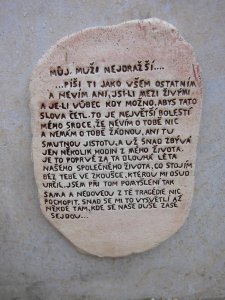 MŮJ MUŽI NEJDRAŽŠÍ....
...PÍŠI TI JAKO VŠEM OSTATNÍM
A NEVÍM ANI, JSI-LI MEZI ŽIVÝMI
A JE-LI VŮBEC KDY MOŽNO, ABYS TATO
SLOVA ČETL. TO JE NEJVĚTŠÍ BOLESTÍ
MÉHO SRDCE, ŽE NEVÍM O TOBĚ NIC
A NEMÁM O TOBĚ ŽÁDNOU, ANI TU
SMUTNOU JISTOTU. A UŽ SNAD ZBÝVÁ
JEN NĚKOLIK HODIN Z MÉHO ŽIVOTA.
JE TO POPRVÉ ZA TA DLOUHÁ LÉTA
NAŠEHO SPOLEČNÉHO ŽIVOTA, CO STOJÍM
BEZ TEBE VE ZKOUŠCE, KTEROU MI OSUD
URČIL. JSEM PŘI TOM POMYŠLENÍ TAK
SAMA A NEDOVEDU Z TÉ TRAGÉDIE NIC
POCHOPIT. SNAD SE MI TO VYSVĚTLÍ AŽ
NĚKDE TAM, KDE SE NAŠE DUŠE ZASE
SEJDOU...